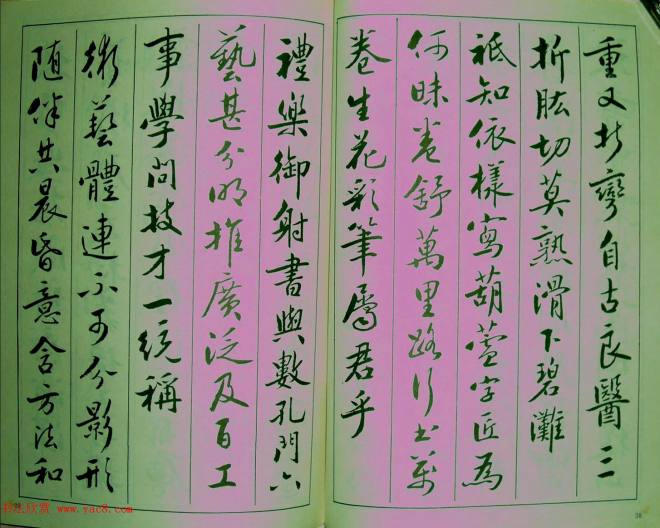 重又折彎自古良醫三
折肱切莫熟滑下碧灘
祗知依樣寫葫蘆字匠為
何昧卷舒萬里路行書萬
卷生花彩筆屬君乎
禮樂御射書與數孔門六
藝甚分明推廣泛及百工
事學問技才一統稱
術藝體連不可分影形
隨伴共晨昏意含方法和
书法欣赏 www.yac8.com